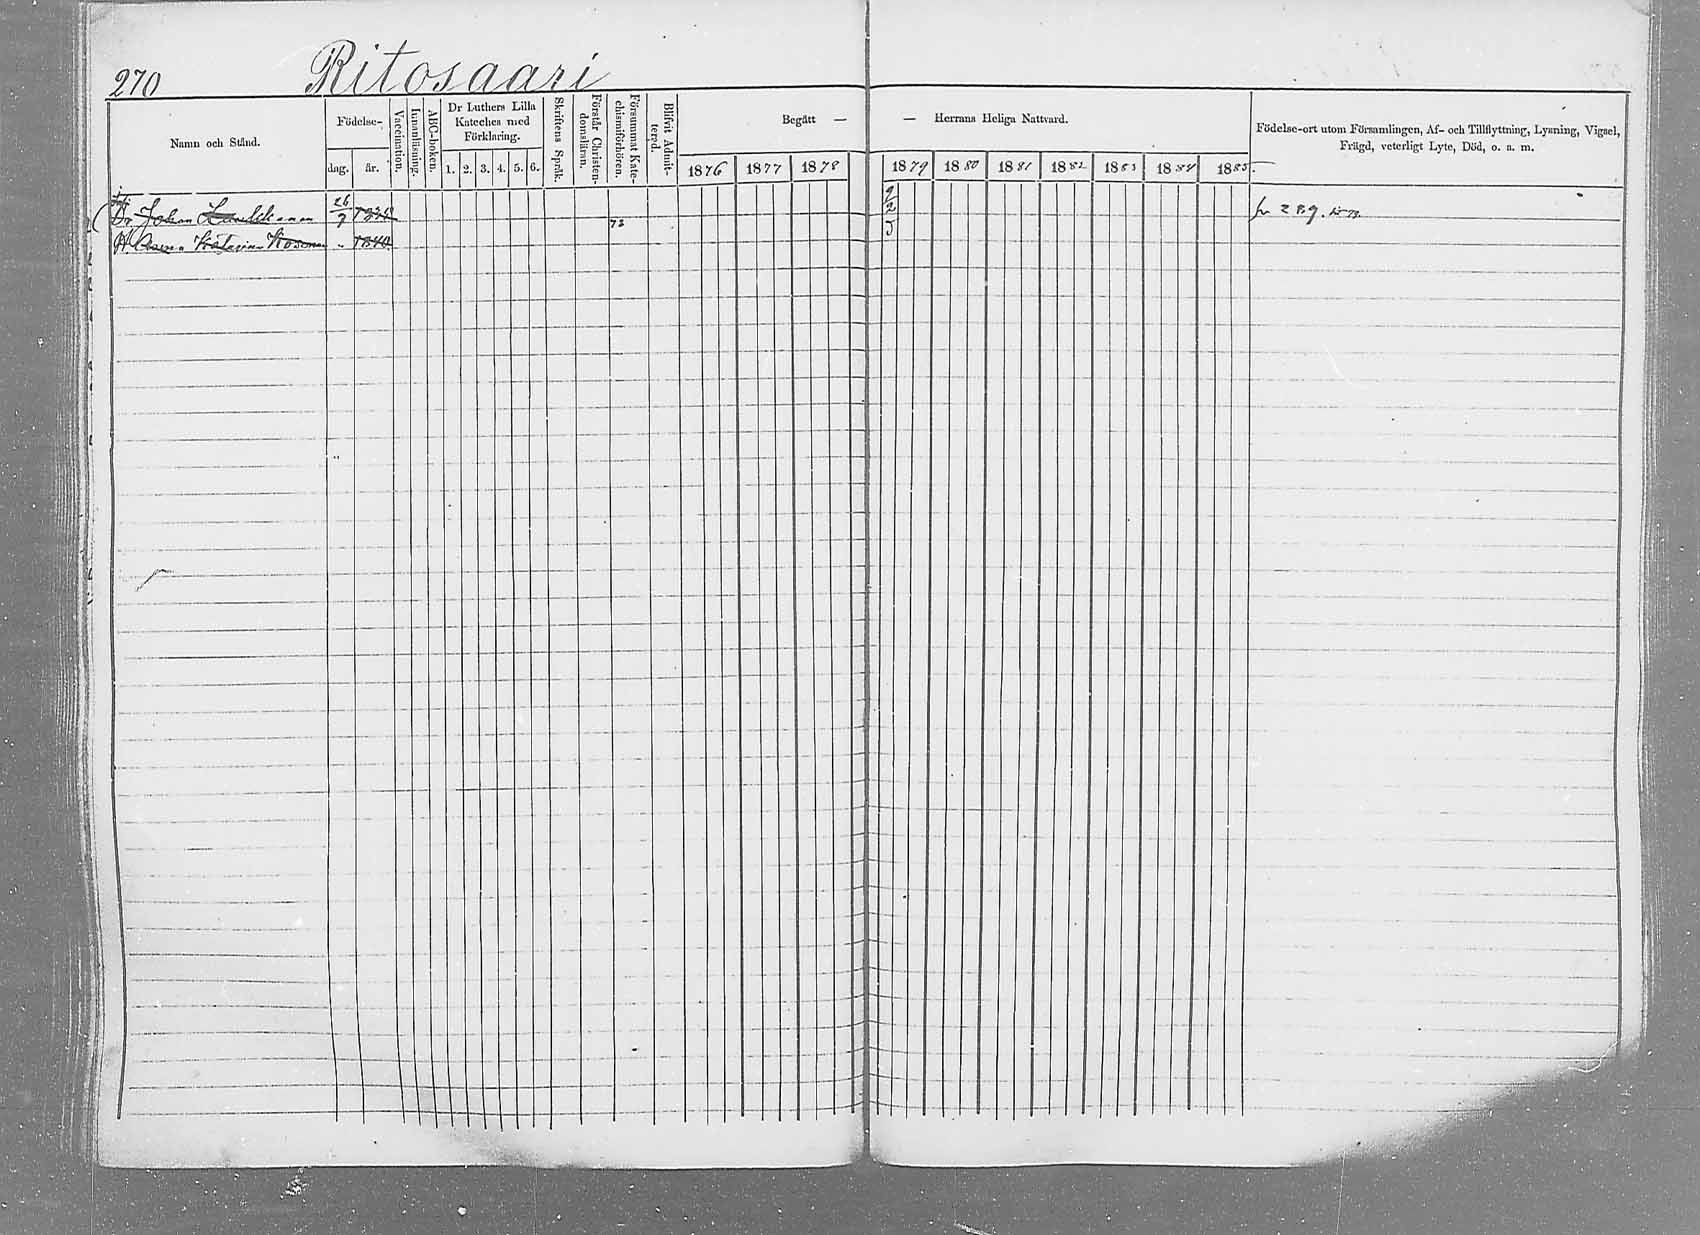 270 Ritosaari
Namn och Stånd.
Födelse-
dag.
år.
Vaccination.
Innanläsning.
ABC-boken.
Dr Luthers Lilla
Kateches med
Förklaring.
1. 2. 3. 4. 5. 6.
Skriftens Språk.
Förstår Christen-
domsläran.
Försummat Kate-
chismiförhören.
Blifvit Admit-
terad.
Begått —
— Herrans Heliga Nattvard.
1876 1877 1878 1879 1880 1881 1882 1883 1884 1885
Födelse-ort utom Församlingen, Af- och Tillflyttning, Lysning, Vigsel,
Frägd, veterligt Lyte, Död, o. a. m.
Johan
26/9
73
9/2
Katarina
" 1840